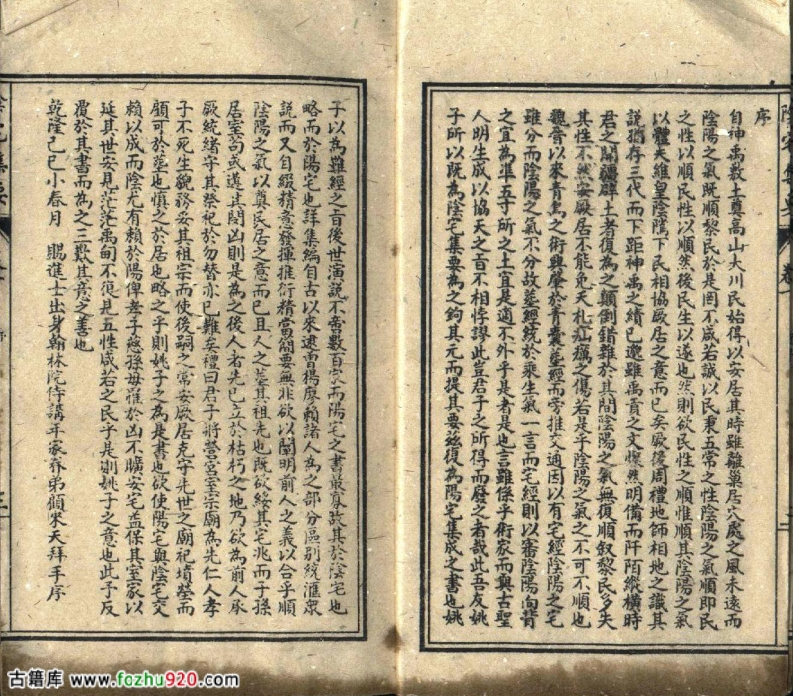 序
自神禹敷土奠高山大川民始得以安居其時雖離巢居穴處之風未遠而
陰陽之氣既順黎民於是罔不咸若誠以民秉五常之性陰陽之氣順即民
之性以順民性以順然後民生以遂也然則欲民性之順惟順其陰陽之氣
以體天維皇陰隲下民相協厥居之意而已矣厥後周禮地師相地之識其
説猶存三代而下距神禹之績已邈雖禹貢之文燦然明備而阡陌縱橫時
君之開疆闢土者復為之顛倒錯雜於其間陰陽之氣無復順叙黎民多失
其性不然安厥居不能免夭札疝癘之傷若是乎陰陽之氣之不可不順也
聽音以來青烏之術興肇於青囊葬經而旁推交通因以有宅經陰陽之宅
雖分而陰陽之氣不分故葬經統於乘生氣一言而宅經則以審陰陽向背
之宜為準五子所之土宜是適不外乎是者是也言雖係乎術家而與古聖
人明生成以協天之旨不相悖謬此豈君子之所得而廢之者哉此吾友姚
子所以既為陰宅集要為之鉤其元而提其要玆復為陽宅集成之書也姚
子以為葬經之旨後世演説不啻數百家而陽宅之書最寡故其於陰宅也
略而於陽宅也詳集編自古以來逮曾楊廖賴諸人為之部分區別統滙眾
説而又自綴精意發揮推衍精當簡要無非欲以闡明前人之義以合乎順
陰陽之氣以奠民居之意而已且人之墓其祖先也既欲綏其宅兆而子孫
居室苟或遘其閔凶則是為之後人者先已立於枯朽之地乃欲為前人承
厥統緒守其祭祀於勿替亦已難矣禮曰君子將營宮室宗廟為先仁人孝
子不死生貌務妥其祖宗而使後嗣之常安厥居克守先世之廟祀墳塋而
顧可於墓也慎之於居也略之乎則姚子之為是書也欲使陽宅與陰宅交
賴以成而陰尤有賴於陽俾孝子慈孫毋罹於凶不曠安宅益保其室家以
延其世安見茫茫禹甸不復見五性咸若之民乎是則姚子之意也此予反
覆於其書而為之三歎其意之善也
乾隆己巳小春月　賜進士出身翰林院侍講年家眷弟顧棨天拜手序
古籍库 www.fozhu920.com